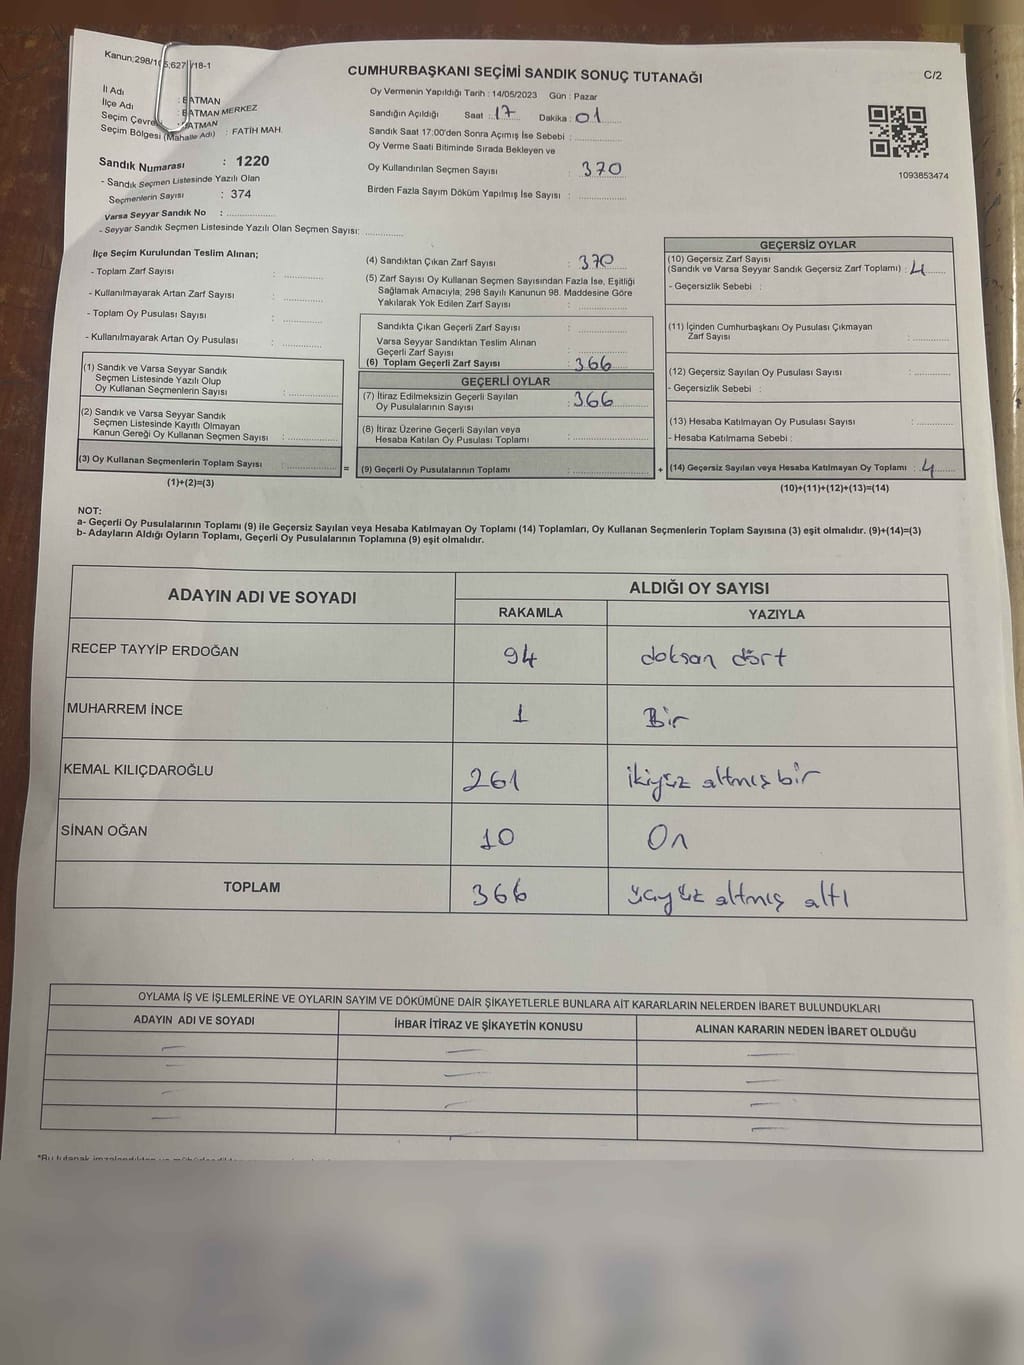 Kanun:298/105,627/ /18-1
CUMHURBAŞKANI SEÇİMİ SANDIK SONUÇ TUTANAĞI
C/2
İl Adı : BATMAN
İlçe Adı : BATMAN MERKEZ
Seçim Çevresi : BATMAN
Seçim Bölgesi (Mahalle Adı) : FATİH MAH.
Oy Vermenin Yapıldığı Tarih : 14/05/2023 Gün : Pazar
Sandığın Açıldığı Saat : 17 Dakika : 01
Sandık Saat 17:00'den Sonra Açımış İse Sebebi :
Oy Verme Saati Bitiminde Sırada Bekleyen ve
Oy Kullandırılan Seçmen Sayısı : 370
Birden Fazla Sayım Döküm Yapılmış İse Sayısı :
1093853474
Sandık Numarası : 1220
- Sandık Seçmen Listesinde Yazılı Olan
Seçmenlerin Sayısı : 374
Varsa Seyyar Sandık No :
- Seyyar Sandık Seçmen Listesinde Yazılı Olan Seçmen Sayısı:
İlçe Seçim Kurulundan Teslim Alınan;
- Toplam Zarf Sayısı :
- Kullanılmayarak Artan Zarf Sayısı :
- Toplam Oy Pusulası Sayısı :
- Kullanılmayarak Artan Oy Pusulası :
(1) Sandık ve Varsa Seyyar Sandık
Seçmen Listesinde Yazılı Olup
Oy Kullanan Seçmenlerin Sayısı :
(2) Sandık ve Varsa Seyyar Sandık
Seçmen Listesinde Kayıtlı Olmayan
Kanun Gereği Oy Kullanan Seçmen Sayısı :
(3) Oy Kullanan Seçmenlerin Toplam Sayısı :
(1)+(2)=(3)
=
(4) Sandıktan Çıkan Zarf Sayısı : 370
(5) Zarf Sayısı Oy Kullanan Seçmen Sayısından Fazla İse, Eşitliği
Sağlamak Amacıyla, 298 Sayılı Kanunun 98. Maddesine Göre
Yakılarak Yok Edilen Zarf Sayısı :
Sandıkta Çıkan Geçerli Zarf Sayısı :
Varsa Seyyar Sandıktan Teslim Alınan
Geçerli Zarf Sayısı :
(6) Toplam Geçerli Zarf Sayısı : 366
GEÇERLİ OYLAR
(7) İtiraz Edilmeksizin Geçerli Sayılan
Oy Pusulalarının Sayısı : 366
(8) İtiraz Üzerine Geçerli Sayılan veya
Hesaba Katılan Oy Pusulası Toplamı :
(9) Geçerli Oy Pusulalarının Toplamı :
+
GEÇERSİZ OYLAR
(10) Geçersiz Zarf Sayısı
(Sandık ve Varsa Seyyar Sandık Geçersiz Zarf Toplamı) : 4
- Geçersizlik Sebebi :
(11) İçinden Cumhurbaşkanı Oy Pusulası Çıkmayan
Zarf Sayısı :
(12) Geçersiz Sayılan Oy Pusulası Sayısı :
- Geçersizlik Sebebi :
(13) Hesaba Katılmayan Oy Pusulası Sayısı :
- Hesaba Katılmama Sebebi :
(14) Geçersiz Sayılan veya Hesaba Katılmayan Oy Toplamı : 4
(10)+(11)+(12)+(13)=(14)
NOT:
a- Geçerli Oy Pusulalarının Toplamı (9) ile Geçersiz Sayılan veya Hesaba Katılmayan Oy Toplamı (14) Toplamları, Oy Kullanan Seçmenlerin Toplam Sayısına (3) eşit olmalıdır. (9)+(14)=(3)
b- Adayların Aldığı Oyların Toplamı, Geçerli Oy Pusulalarının Toplamına (9) eşit olmalıdır.
ADAYIN ADI VE SOYADI
ALDIĞI OY SAYISI
RAKAMLA YAZIYLA
RECEP TAYYİP ERDOĞAN 94 doksan dört
MUHARREM İNCE 1 Bir
KEMAL KILIÇDAROĞLU 261 ikiyüz altmış bir
SİNAN OĞAN 10 On
TOPLAM 366 üçyüz altmış altı
OYLAMA İŞ VE İŞLEMLERİNE VE OYLARIN SAYIM VE DÖKÜMÜNE DAİR ŞİKAYETLERLE BUNLARA AİT KARARLARIN NELERDEN İBARET BULUNDUKLARI
ADAYIN ADI VE SOYADI İHBAR İTİRAZ VE ŞİKAYETİN KONUSU ALINAN KARARIN NEDEN İBARET OLDUĞU